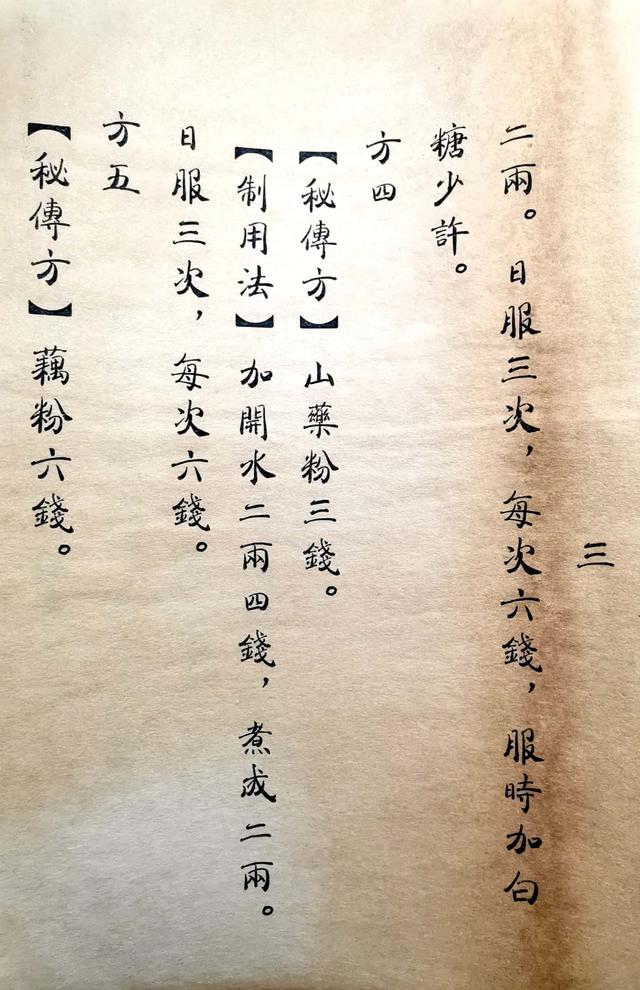 三
二兩。日服三次，每次六錢，服時加白
糖少許。
方四
【秘傳方】山藥粉三錢。
【制用法】加開水二兩四錢，煮成二兩。
日服三次，每次六錢。
方五
【秘傳方】藕粉六錢。